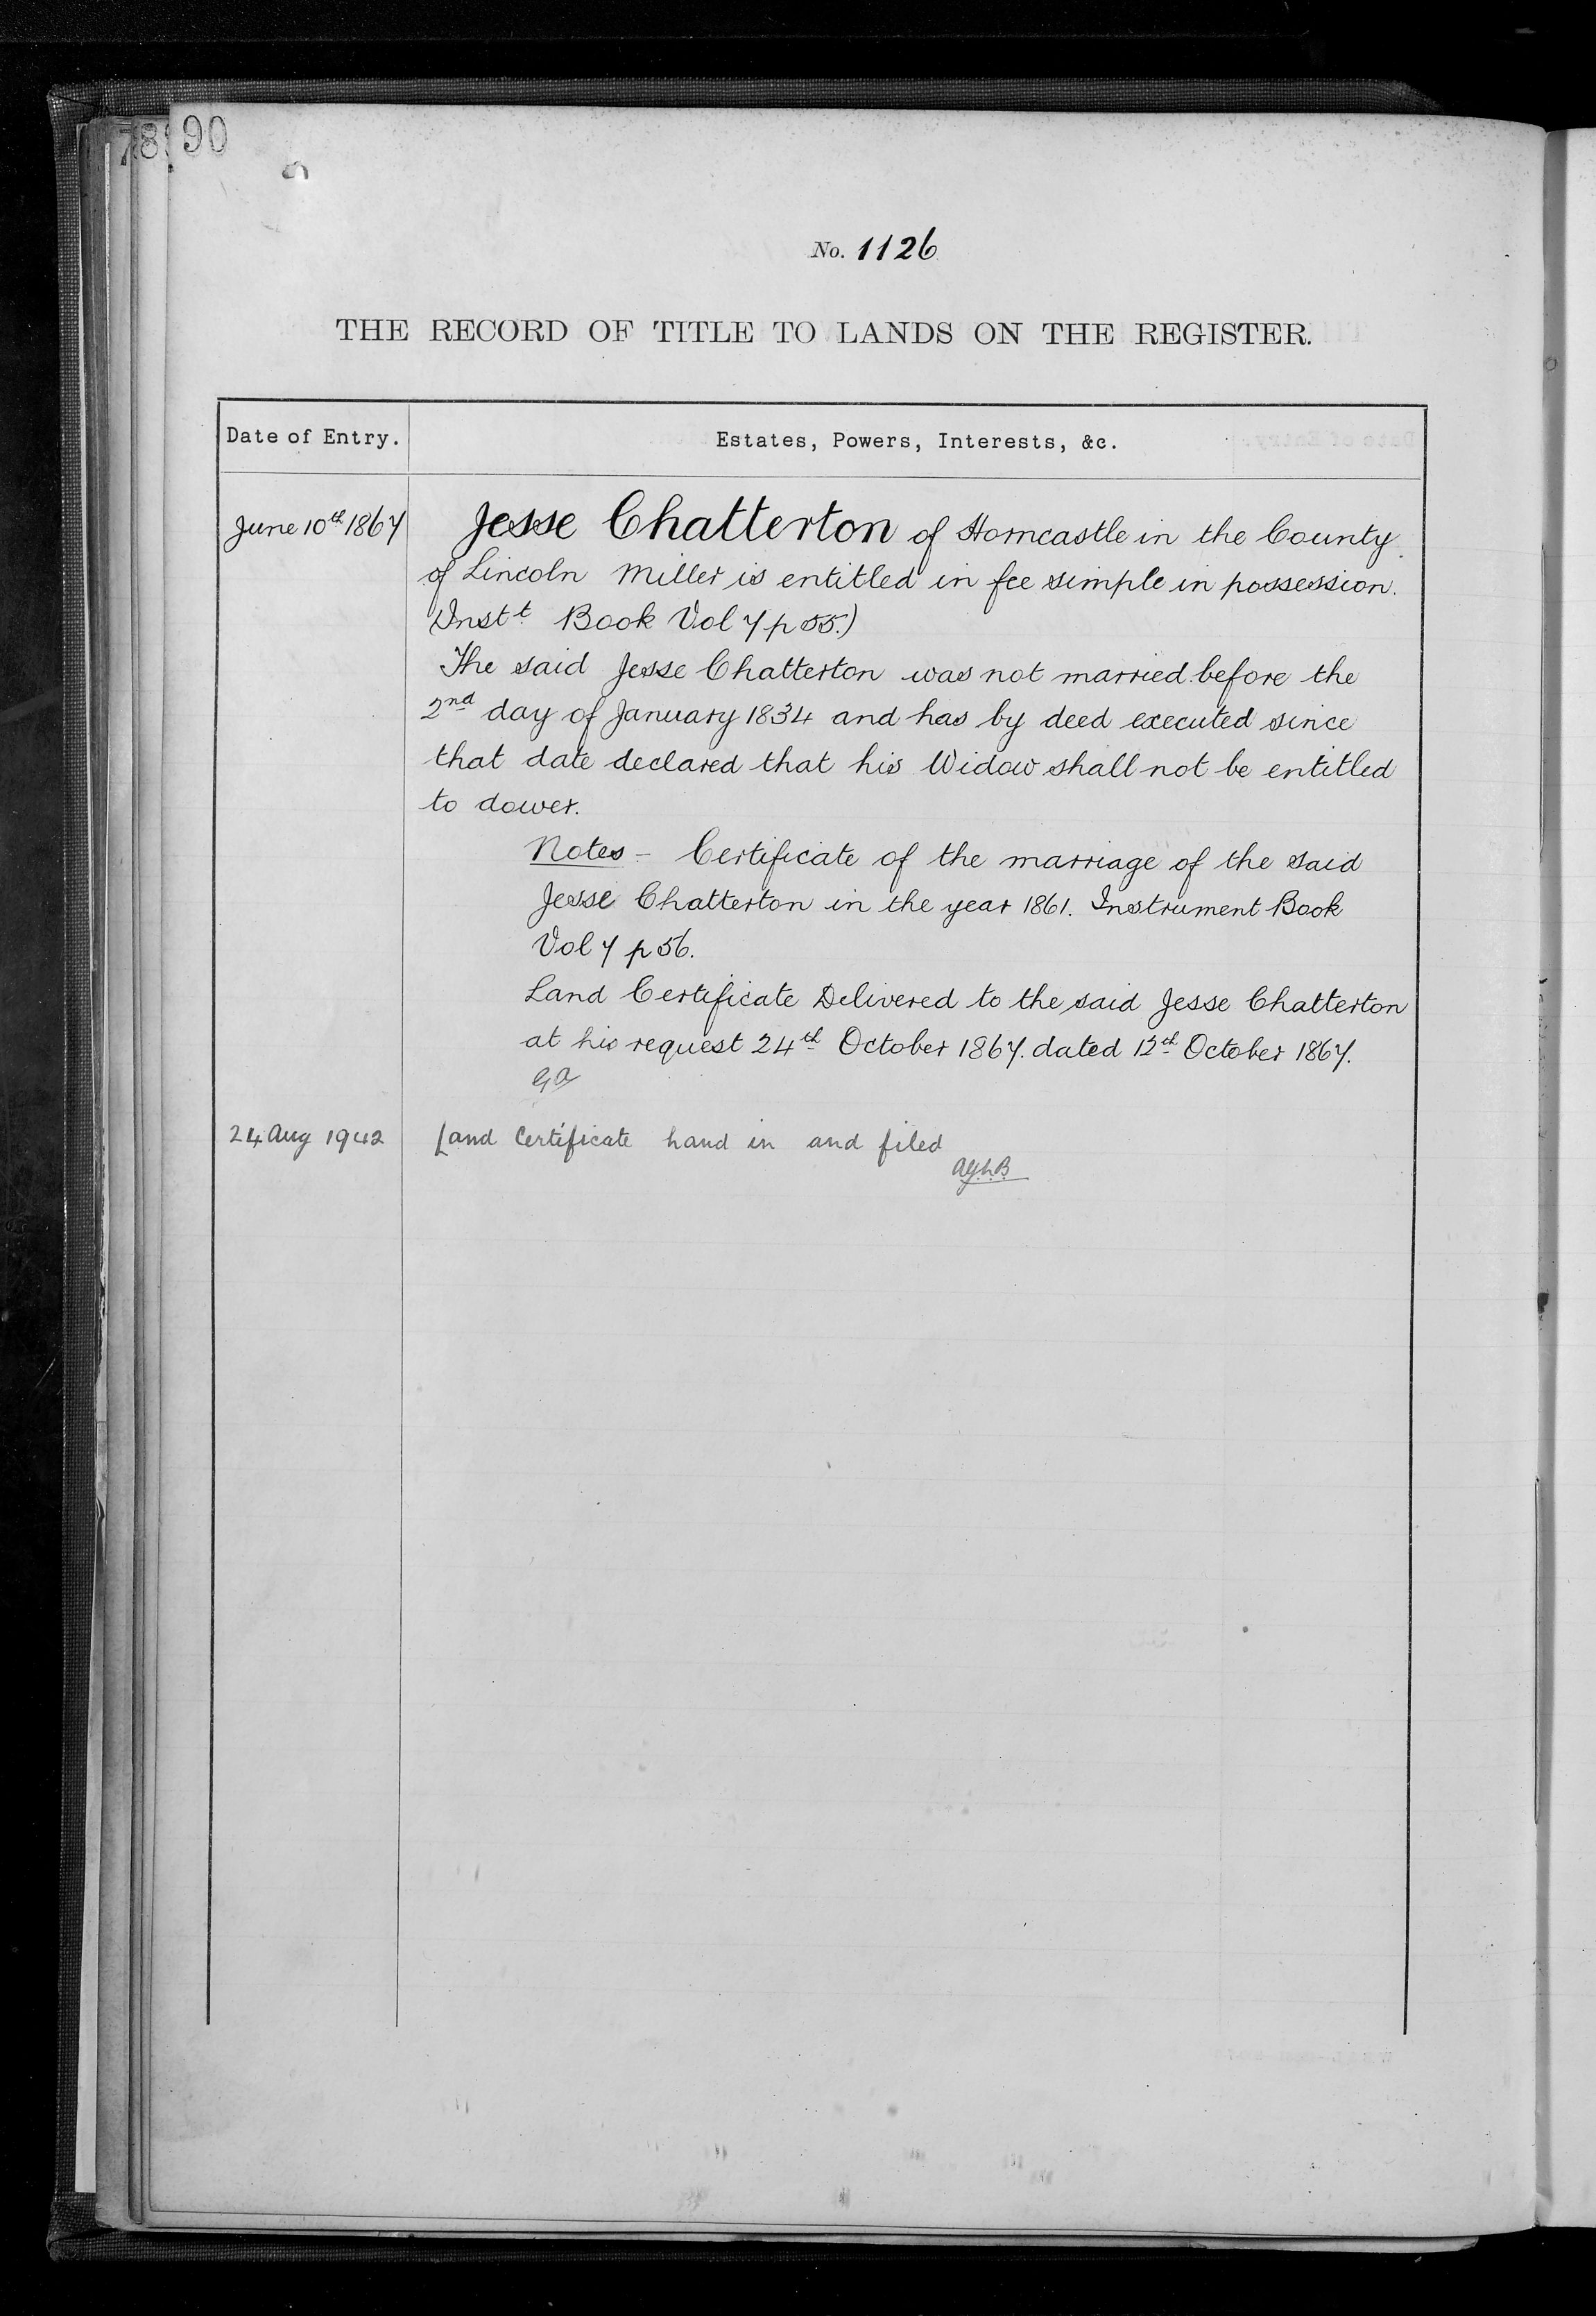 78
90
No. 1126
THE RECORD OF TITLE TO LANDS ON THE REGISTER.
Date of Entry.
Estates, Powers, Interests, &c.
June 10th 1867
Jesse Chatterton of Horncastle in the County
of Lincoln Miller is entitled in fee simple in possession.
Instt Book Vol 7 p 55.)
The said Jesse Chatterton was not married before the
2nd day of January 1834 and has by deed executed since
that date declared that his Widow shall not be entitled
to dower.
Notes - Certificate of the marriage of the said
Jesse Chatterton in the year 1861. Instrument Book
Vol 7 p 56.
Land Certificate Delivered to the said Jesse Chatterton
at his request 24th October 1867. dated 12th October 1867.
24 Aug 1942
Land Certificate hand in and filed